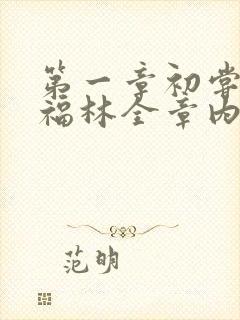 第一章初尝
福林全章内
范明